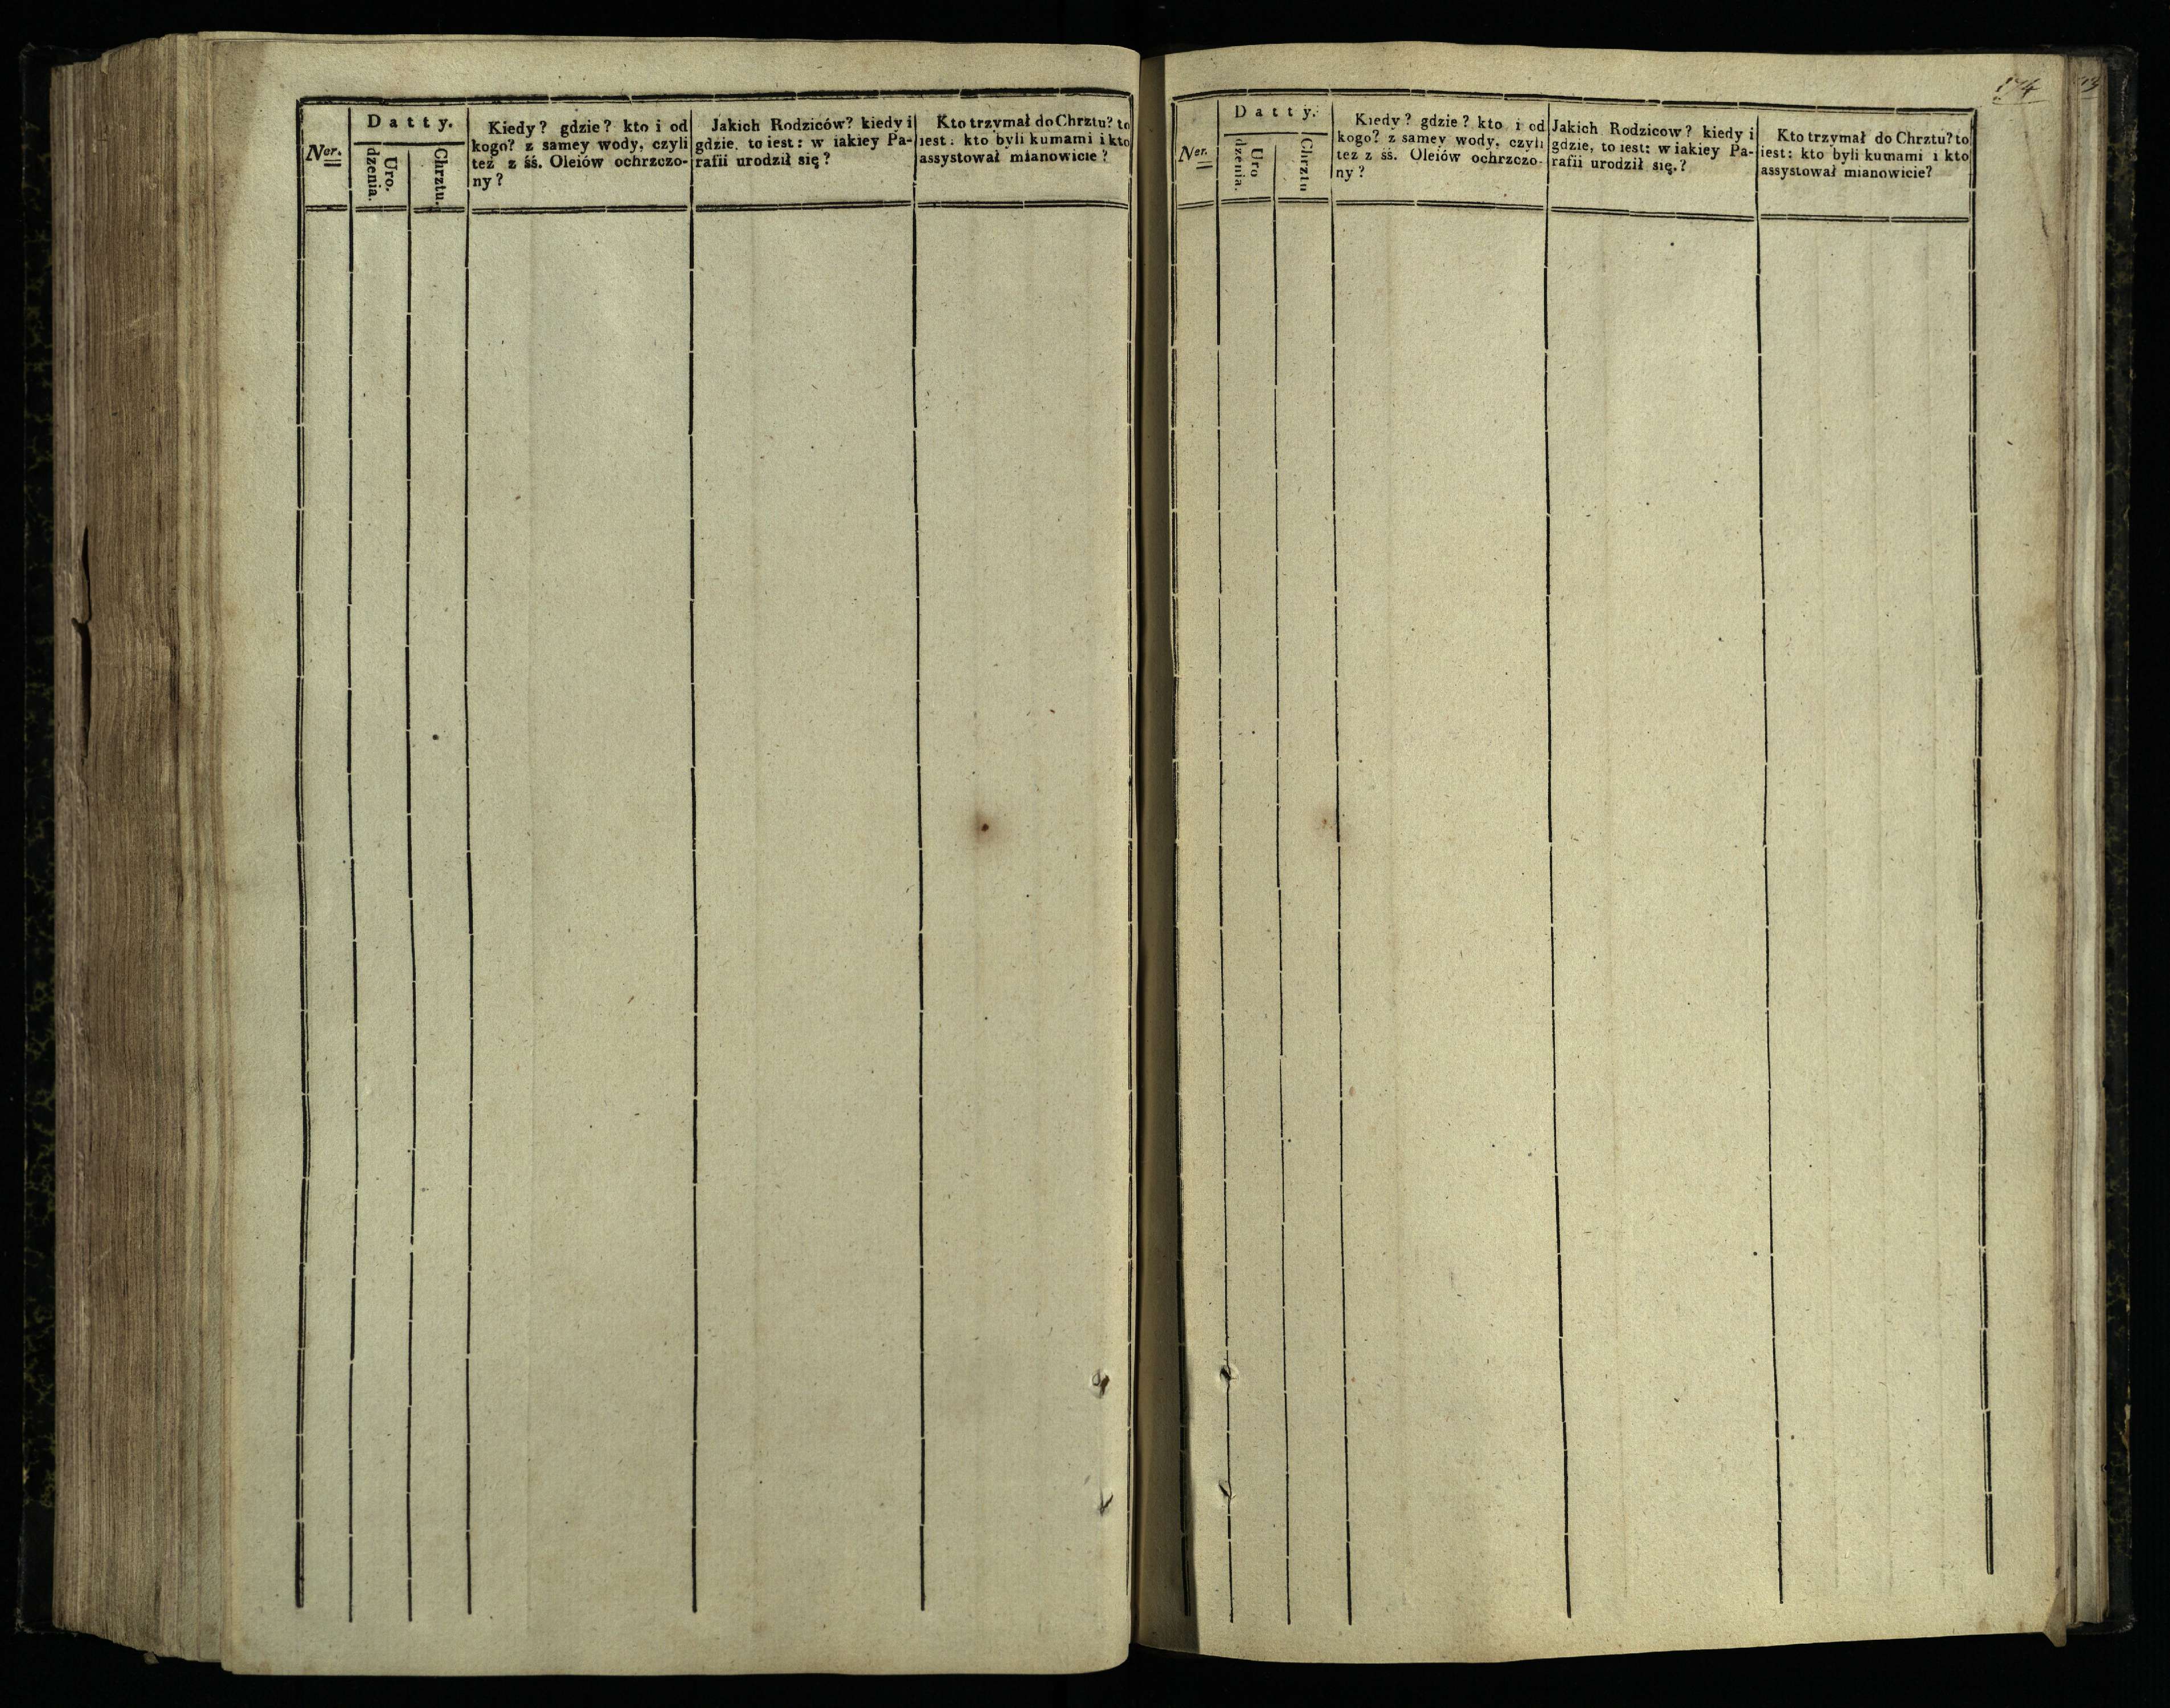 Ner.
Datty.
Uro.
dzenia.
Chrztu.
Kiedy? gdzie? kto i od
kogo? z samey wody, czyli
też z śś. Oleiów ochrzczo-
ny?
Jakich Rodziców? kiedy i
gdzie, to iest: w iakiey Pa-
rafii urodził się?
Kto trzymał do Chrztu? to
iest: kto byli kumami i kto
assystował mianowicie?
174
Ner.
Datty.
Uro
dzenia.
Chrztu
Kiedy? gdzie? kto i od
kogo? z samey wody, czyli
też z śś. Oleiów ochrzczo-
ny?
Jakich Rodzicow? kiedy i
gdzie, to iest: w iakiey Pa-
rafii urodził się.?
Kto trzymał do Chrztu? to
iest: kto byli kumami i kto
assystował mianowicie?